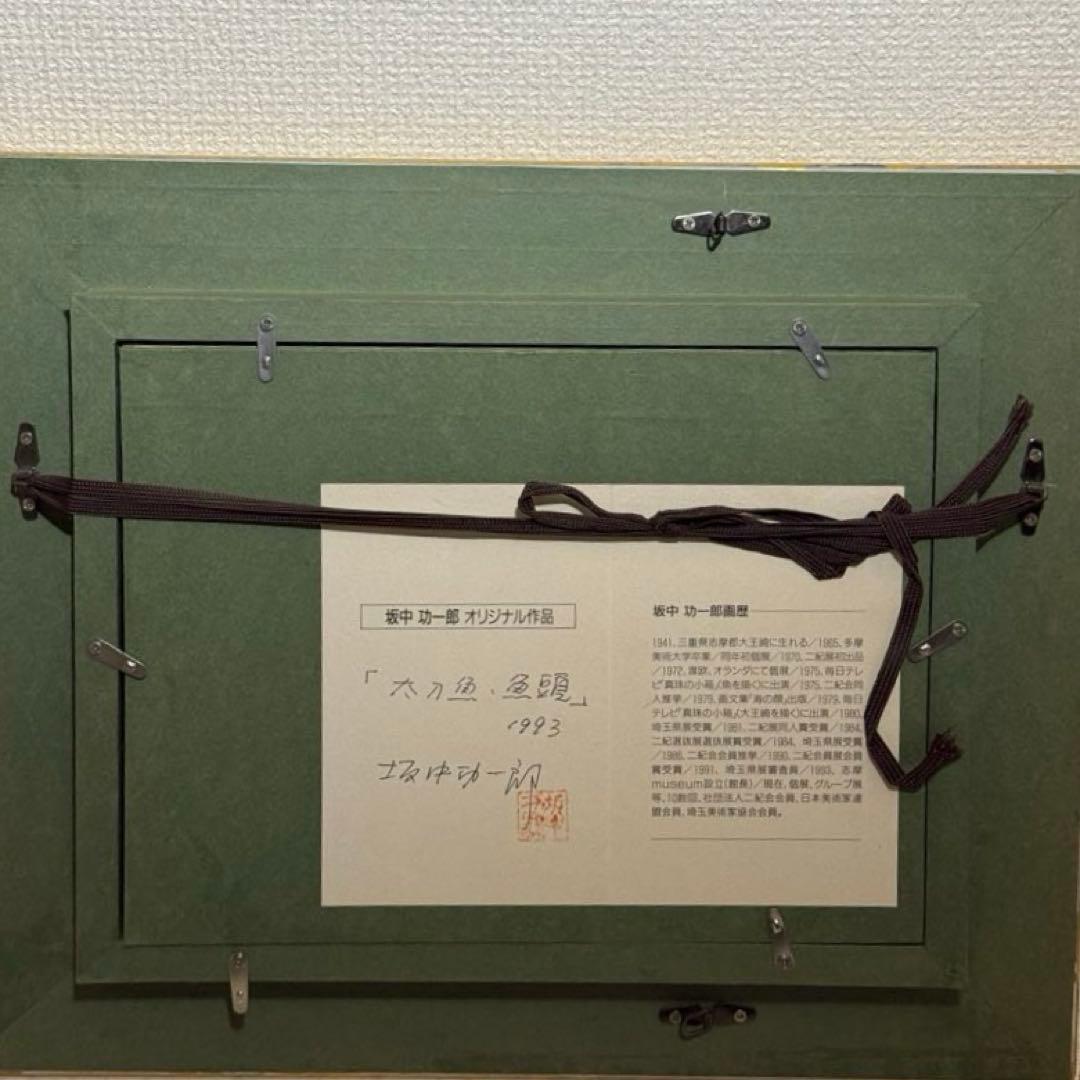 坂中 功一郎 オリジナル作品
「太刀魚、魚頭」
1993
坂中功一郎
坂中 功一郎画歴
1941、三重県志摩郡大王崎に生れる/1965、多摩
美術大学卒業/同年初個展/1970、二紀展初出品
/1972、渡欧、オランダにて個展/1975、毎日テレ
ビ「真珠の小箱」(魚を描く)に出演/1975、二紀会同
人推挙/1979、画文集「海の顔」出版/1979、毎日
テレビ「真珠の小箱」(大王崎を描く)に出演/1980、
埼玉県展受賞/1981、二紀展同人賞受賞/1984、
二紀選抜展選抜展賞受賞/1984、埼玉県展受賞
/1986、二紀会会員推挙/1990、二紀会員展会員
賞受賞/1991、埼玉県展審査員/1993、志摩
museum設立(館長)/現在、個展、グループ展
等、10数回、社団法人二紀会会員、日本美術家連
盟会員、埼玉美術家協会会員。